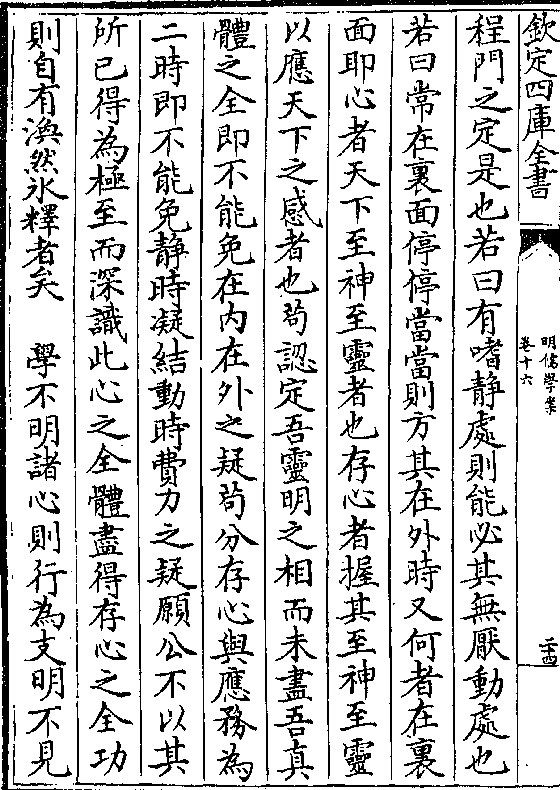 欽定四庫全書
明儒學案
卷十六
二十四
程門之定是也若曰有嗜靜處則能必其無厭動處也
若曰常在裏面停停當當則方其在外時又何者在裏
面耶心者天下至神至靈者也存心者握其至神至靈
以應天下之感者也茍認定吾靈明之相而未盡吾真
體之全即不能免在内在外之疑茍分存心與應務為
二時即不能免靜時凝結動時費力之疑願公不以其
所已得為極至而深識此心之全體盡得存心之全功
則自有渙然氷釋者矣　學不明諸心則行為支明不見